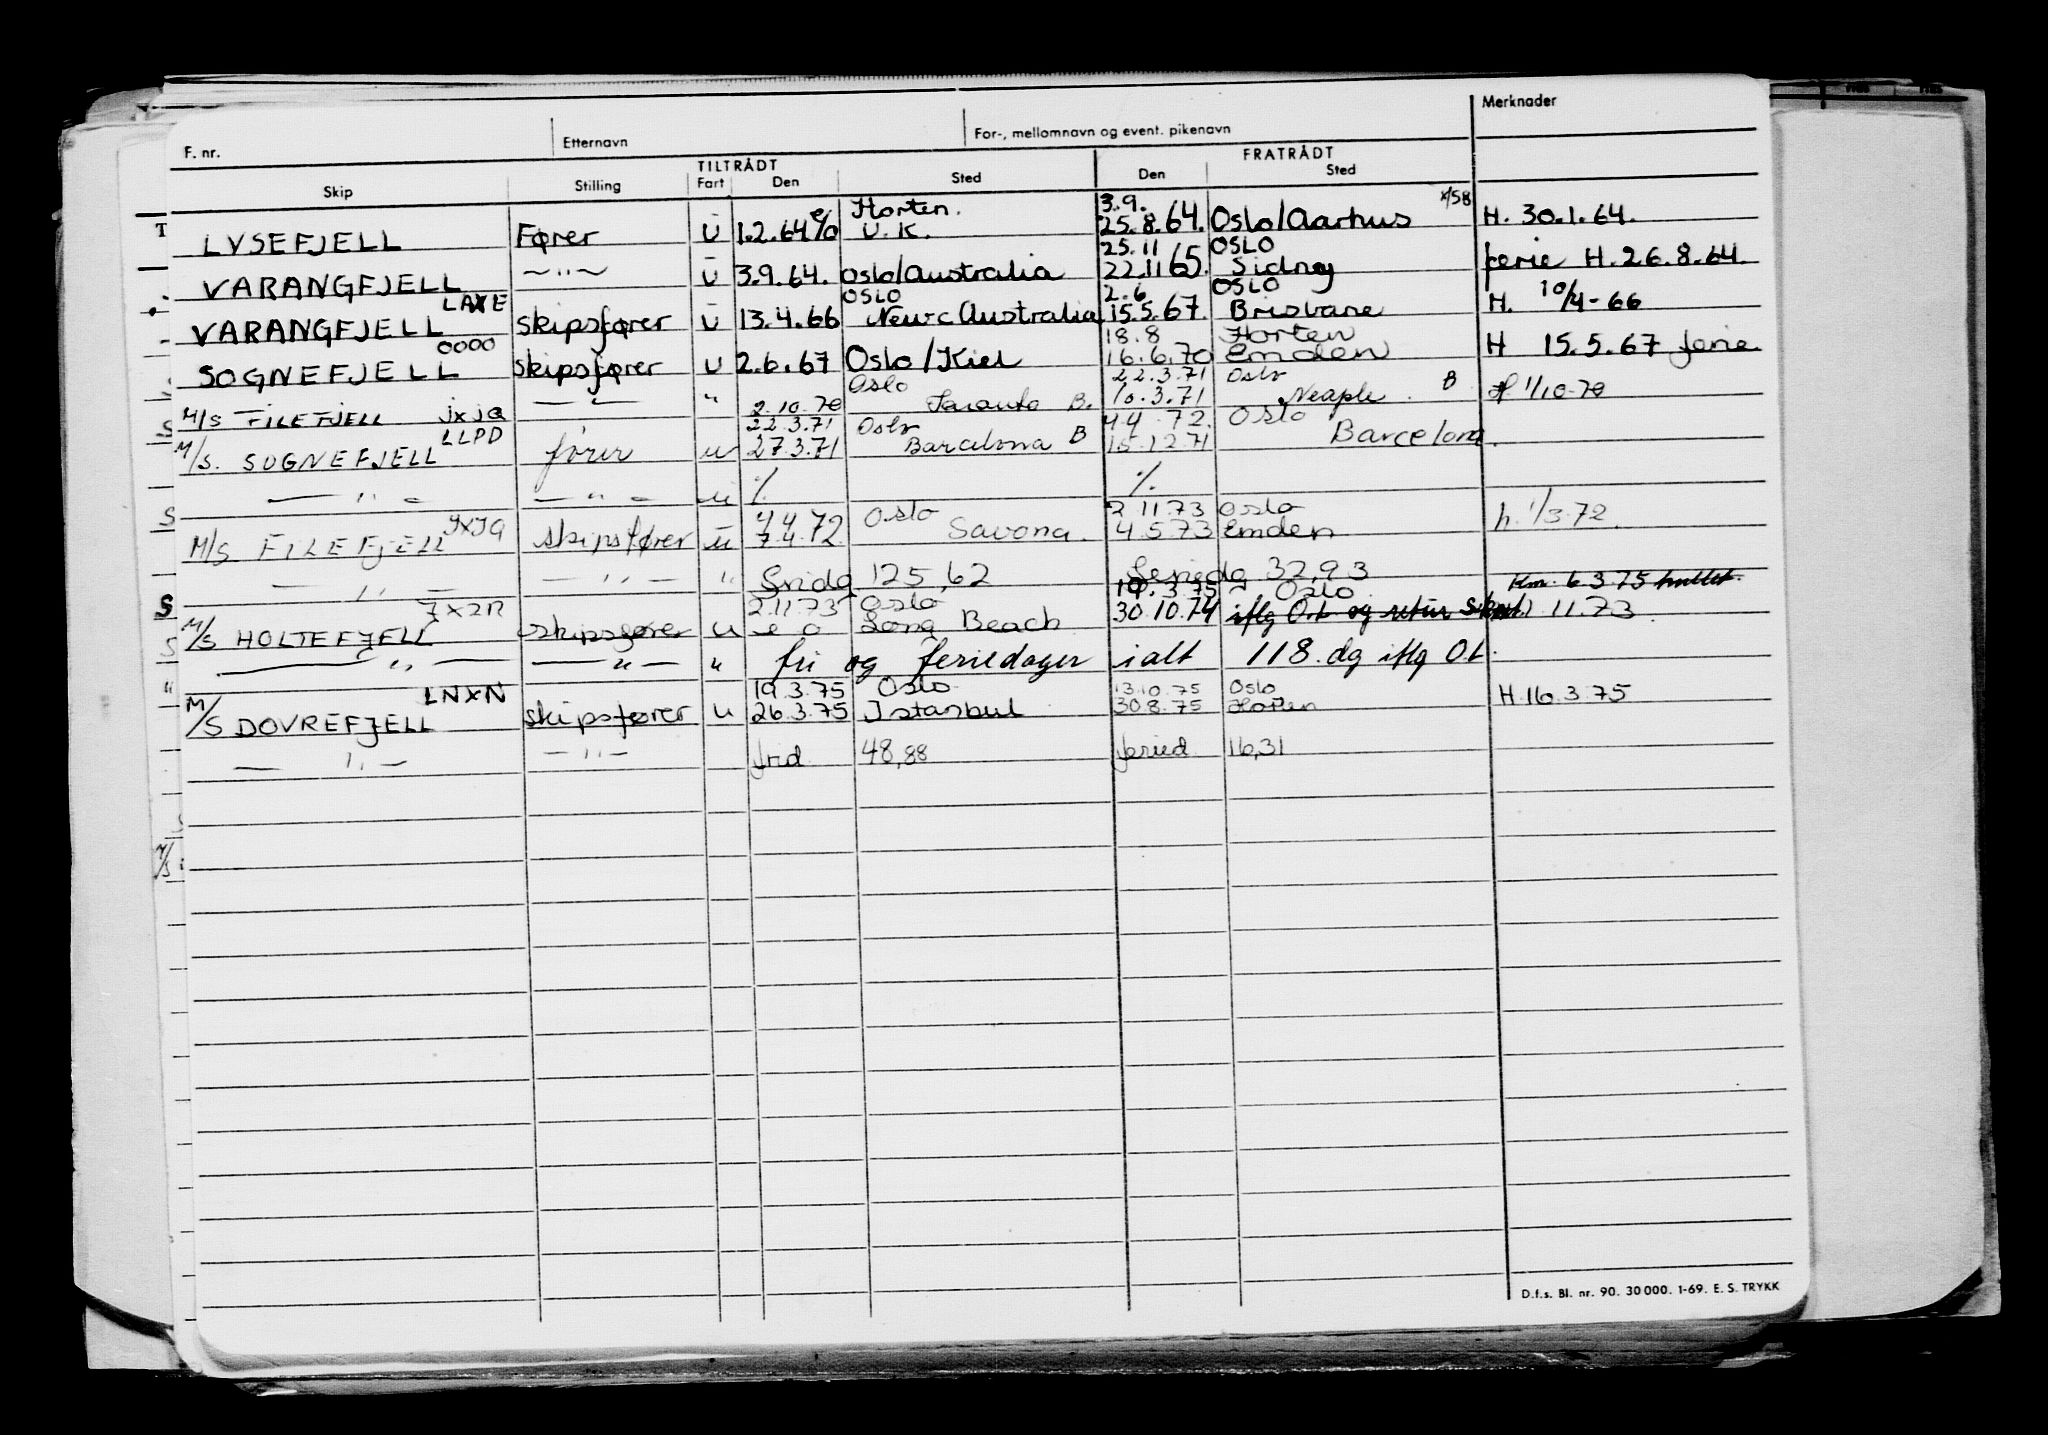 Merknader
F. nr. Etternavn For-, mellomnavn og event. pikenavn
TILTRÅDT FRATRÅDT
Skip Stilling Fart Den Sted Den Sted
Horten. 3.9. x/58
LYSEFJELL Fører U 1.2.64 U.K. 25.8.64. Oslo/Aarhus H. 30.1.64.
25.11 OSLO
VARANGFJELL —"— U 3.9.64. Oslo/Australia 22.11.65. Sidney ferie H.26.8.64.
LAXE OSLO 2.6 OSLO
VARANGFJELL skipsfører U 13.4.66 Newc Australia 15.5.67. Brisbane H. 10/4-66
0000 18.8 Horten
SOGNEFJELL skipsfører U 2.6.67 Oslo/Kiel 16.6.70 Emden H 15.5.67 ferie
Oslo 22.3.71 Oslo
M/S FILEFJELL JXJQ —"— " 2.10.70 Taranto B. 10.3.71 Neaple. B H 1/10-70
LLPD 22.3.71 Oslo 4.4.72. Oslo
M/S. SOGNEFJELL fører u 27.3.71 Barcelona B 15.12.71 Barcelona.
—"— —"— u % %
JXJQ 4.4.72 Oslo 2.11.73 Oslo
M/S FILEFJELL skipsfører u 7.4.72. Savona. 4.5.73 Emden h. 1/3.72.
—"— —"— " fridg 125,62 feriedg 32,93
JXZR 2.11.73 Oslo 19.3.75 Oslo Km. 6.3.75 hullet.
M/S HOLTEFJELL skipsfører u e o Long Beach 30.10.74 iflg O.L og retur 11.73.
—"— —"— " fri og feriedager ialt 118 dg iflg O.L.
LNXN 19.3.75 Oslo 13.10.75 Oslo
M/S DOVREFJELL skipsfører u 26.3.75 Istanbul 30.8.75 Horten H.16.3.75
—"— —"— frid. 48,88 feried 16,31
D.f.s. Bl. nr. 90. 30 000. 1-69. E. S. TRYKK